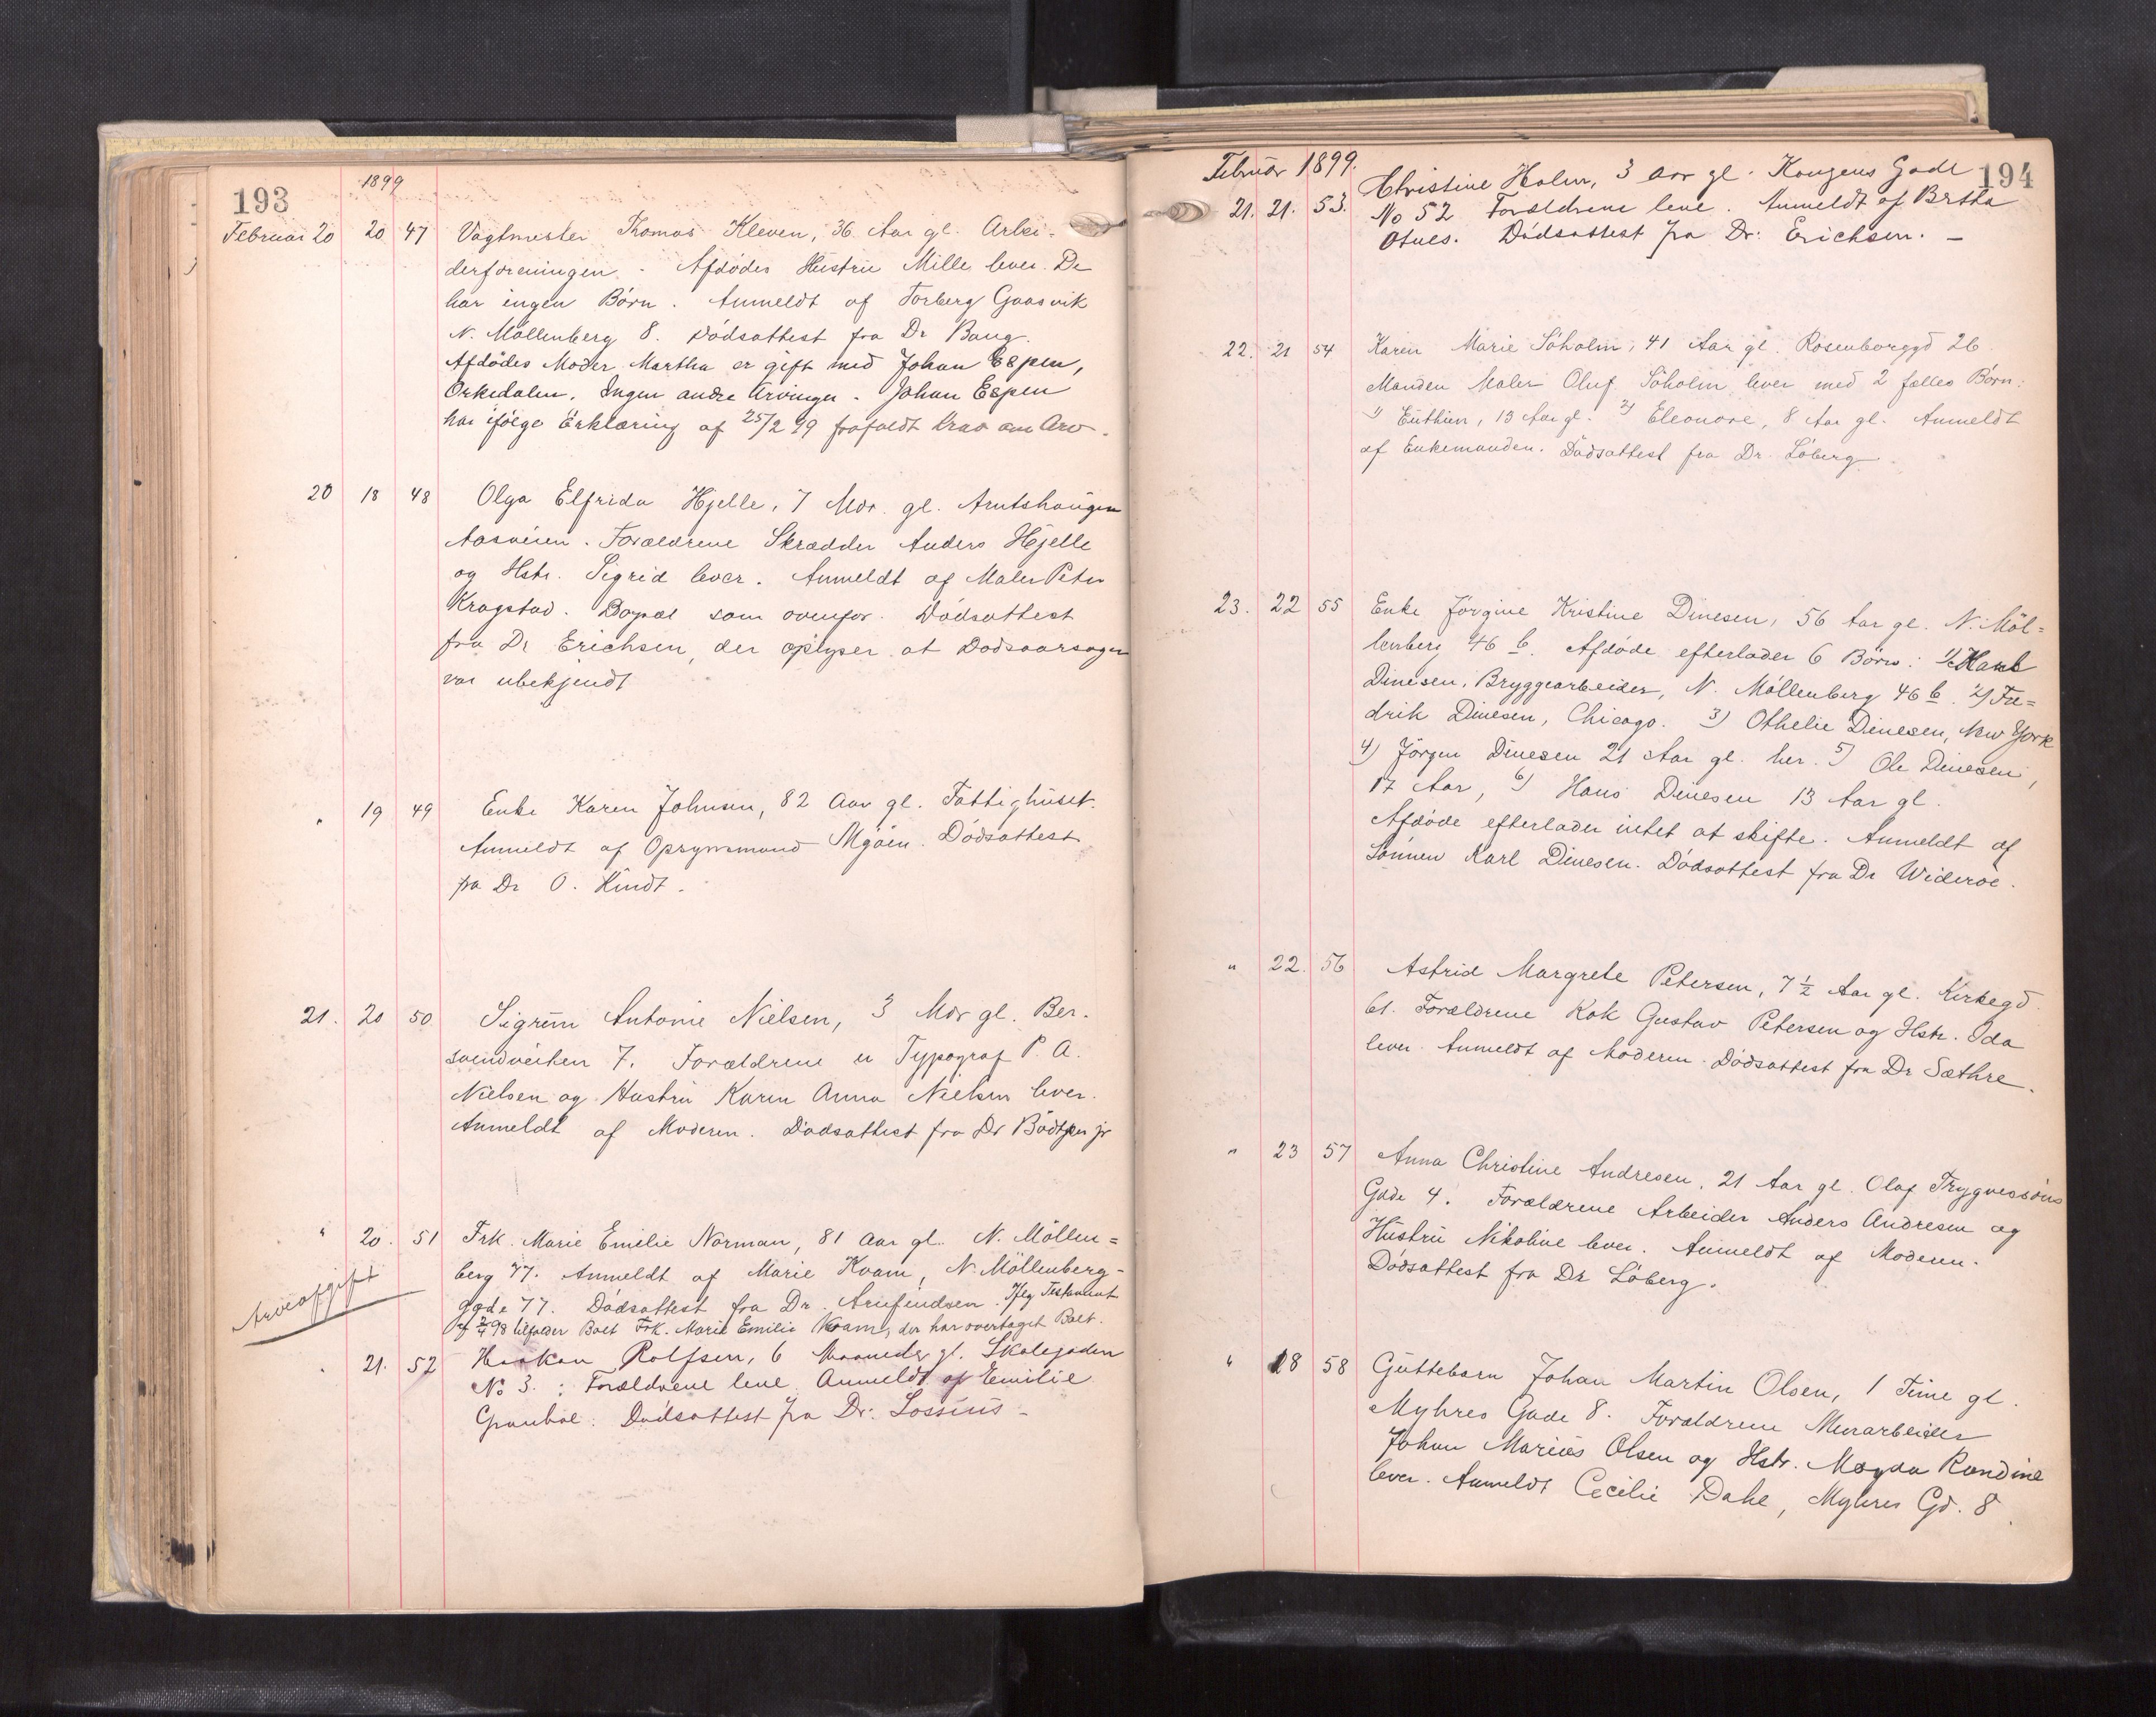 193
1899
Februar 20 20 47 Vagtmester Thomas Kleven, 36 Aar gl. Arbei-
derforeningen. Afdødes Hustru Mille lever. De
har ingen Børn. Anmeldt af Torberg Gaasvik
N. Møllenberg 8. Dødsattest fra Dr Bang.
Afdødes Moder Martha er gift med Johan Espen,
Orkedalen. Ingen andre Arvinger. Johan Espen
har ifølge Erklæring af 25/2 99 frafaldt Krav om Arv.
20 18 48 Olga Elfrida Hjelle, 7 Mdr. gl. Arntshaugen
Aasveien. Forældrene Skrædder Anders Hjelle
og Hstr. Sigrid lever. Anmeldt af Maler Peter
Kragstad. Bopæl som ovenfor. Dødsattest
fra Dr Erichsen, der oplyser at Dødsaarsagen
var ubekjendt
" 19 49 Enke Karen Johnsen, 82 Aar gl. Fattighuset.
Anmeldt af Opsynsmand Mjøen. Dødsattest
fra Dr O. Kindt.
21. 20 50 Sigrun Antonie Nielsen, 3 Mdr gl. Ber-
svendveiten 7. Forældrene er Typograf P. A.
Nielsen og Hustru Karen Anna Nielsen lever.
Anmeldt af Moderen. Dødsattest fra Dr Bødtker jr
" 20. 51 Frk. Marie Emilie Norman, 81 Aar gl. N. Møllen=
berg 77. Anmeldt af Marie Kvam, N. Møllenberg-
gade 77. Dødsattest fra Dr. Arnfindsen. Ifølg Testament
Arveafgift
af 2/4 98 tilfalder Boet Frk. Marie Emilie Kvam, der har overtaget Boet.
" 21. 52 Haakon Rolfsen, 6 Maaneder gl. Skolegaden
No 3.: Forældrene leve. Anmeldt af Emilie
Dødsattest fra Dr: Lossius -
194
Februar 1899.
21. 21. 53. Christine Holm, 3 Aar gl. Kongens Gade
No 52 Forældrene leve. Anmeldt af Brtha
Dødsattest fra Dr: Erichsen. -
22. 21 54 Karen Marie Søholm, 41 Aar gl. Rosenborggd 26
Manden Maler Oluf Søholm lever med 2 fælles Børn:
1) 13 Aar gl. 2) Eleonore, 8 Aar gl. Anmeldt
af Enkemanden. Dødsattest fra Dr. Løberg.
23. 22 55 Enke Jørgine Kristine Dinesen, 56 Aar gl. N. Møl=
lenberg 46 b. Afdøde efterlader 6 Børn: 1) Karl
Dinesen, Bryggearbeider, N. Møllenberg 46 b. 2) Fre=
drik Dinesen, Chicago. 3) Othelie Dinesen, New York
4) Jørgen Dinesen 21 Aar gl. her. 5) Ole Dinesen,
17 Aar, 6) Hans Dinesen 13 Aar gl.
Afdøde efterlader intet at skifte. Anmeldt af
Sønnen Karl Dinesen. Dødsattest fra Dr Widerøe.
" 22. 56 Astrid Margrete Petersen, 7 1/2 Aar gl. Kirkegd.
61. Forældrene Kok Gustav Petersen og Hstr. Ida
lever. Anmeldt af Moderen. Dødsattest fra Dr Sæthre.
" 23 57 Anna Christine Andresen, 21 Aar gl. Olaf Trygvessøns
Gade 4. Forældrene Arbeider Anders Andresen og
Hustru Nikoline lever. Anmeldt af Moderen.
Dødsattest fra Dr Løberg.
" 18 58 Guttebarn Johan Martin Olsen, 1 Time gl.
Myhres Gade 8. Forældrene Murarbeider
Johan Marius Olsen og Hstr. Magda Randine
lever. Anmeldt Cecilie Dahl, Myhres Gd. 8.